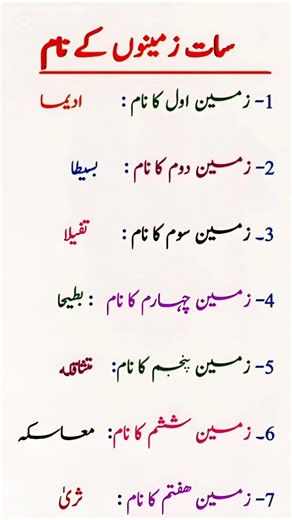 سات زمینوں کے نام
1- زمین اول کا نام : ادیما
2- زمین دوم کا نام : بسیطا
3۔ زمین سوم کا نام : تفیلا
4- زمین چہارم کا نام : بطیحا
5- زمین پنجم کا نام: متثاقله
6۔ زمین ششم کا نام: معاسکہ
7- زمین ہفتم کا نام : ثریٰ